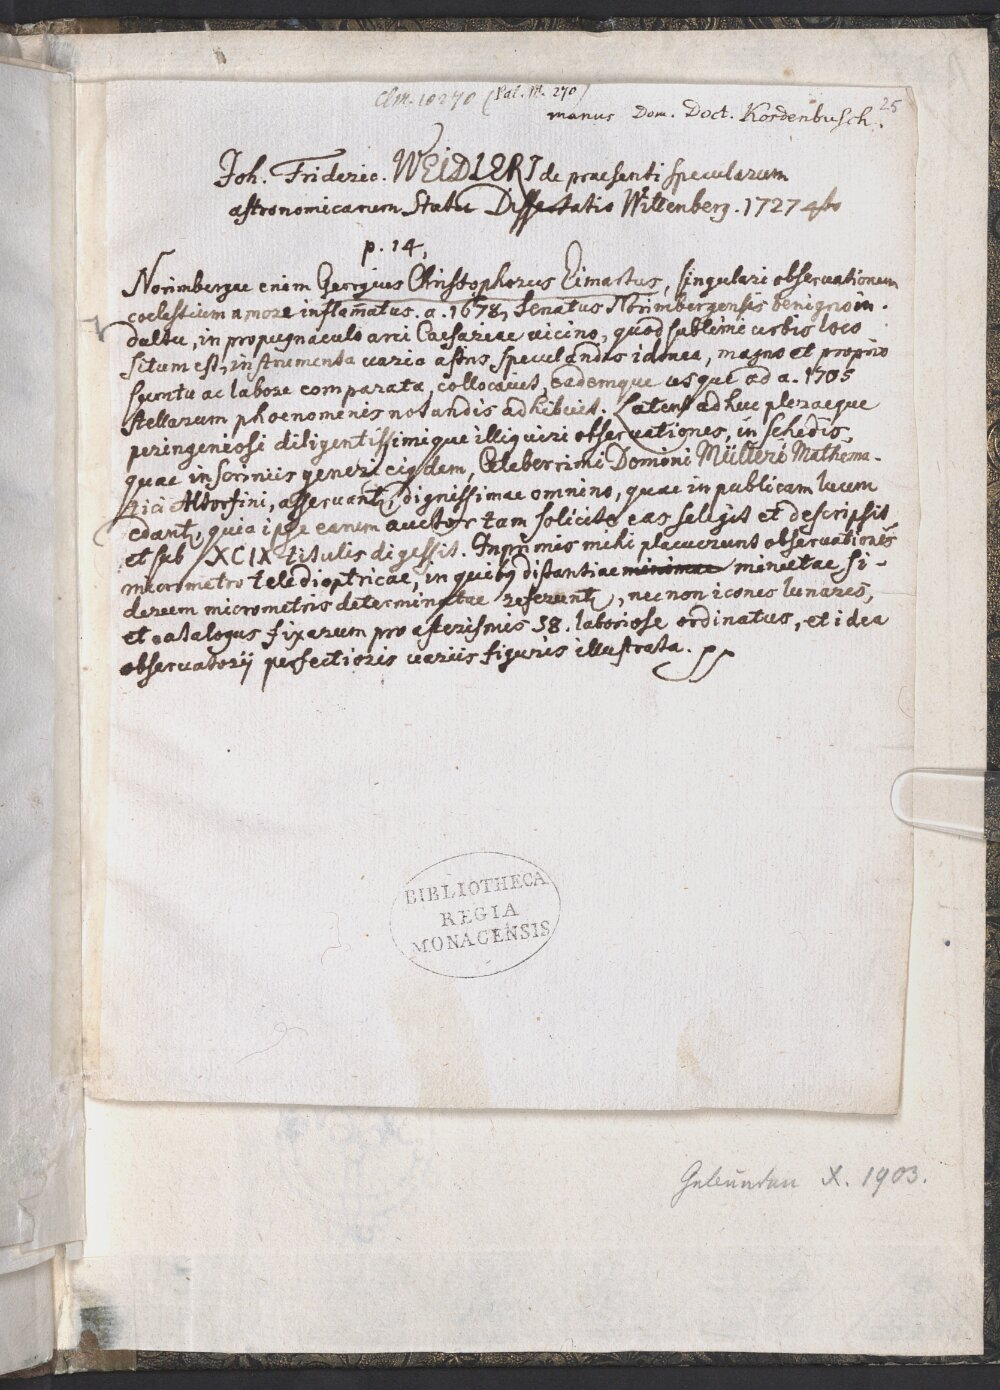 Clm. 10270 (Pal. M. 270)
25
manus Dom. Doct. Kordenbusch.
Joh. Frideric. WEIDLERI de praesenti specularum
astronomicarum Statu Dissertatio Wittenberg. 1727 4to
p. 14,
Norimbergae enim Georgius Christophorus Eimartus, singulari observationum
coelestium amore inflam̄atus. a. 1678, Senatus Norimbergensis benigno in-
dultu, in propugnaculo arci Caesareae vicino, quod sublimi urbis loco
situm est, instrumenta varia astris speculandis idonea, magno et proprio
sumtu ac labore comparata, collocavit, eademque usque ad a. 1705
stellarum phoenomenis notandis adhibuit. Latent adhuc pleraeque
peringeniosi diligentissimique illi viri observationes, in schedis,
quae in scriniis generi eiusdem, Celeberrimi Domini Mülleri Mathema-
tici Altorfini, asservant, dignissimae omnino, quae in publicam lucem
edant, quia ipse earum auctor tam solicite eas selegit et descripsit
et sub XCIX titulis digessit. Inprimis mihi placuerunt observationes
micrometro teledioptricae, in quibus distantiae minimae minutae si-
derum micrometris determinatae referunt, nec non icones lunares,
et catalogus fixarum pro asterismis 38. laboriose ordinatus, et idea
observatorij perfectioris variis figuris illustrata.
BIBLIOTHECA
REGIA
MONACENSIS
Gebunden X. 1903.